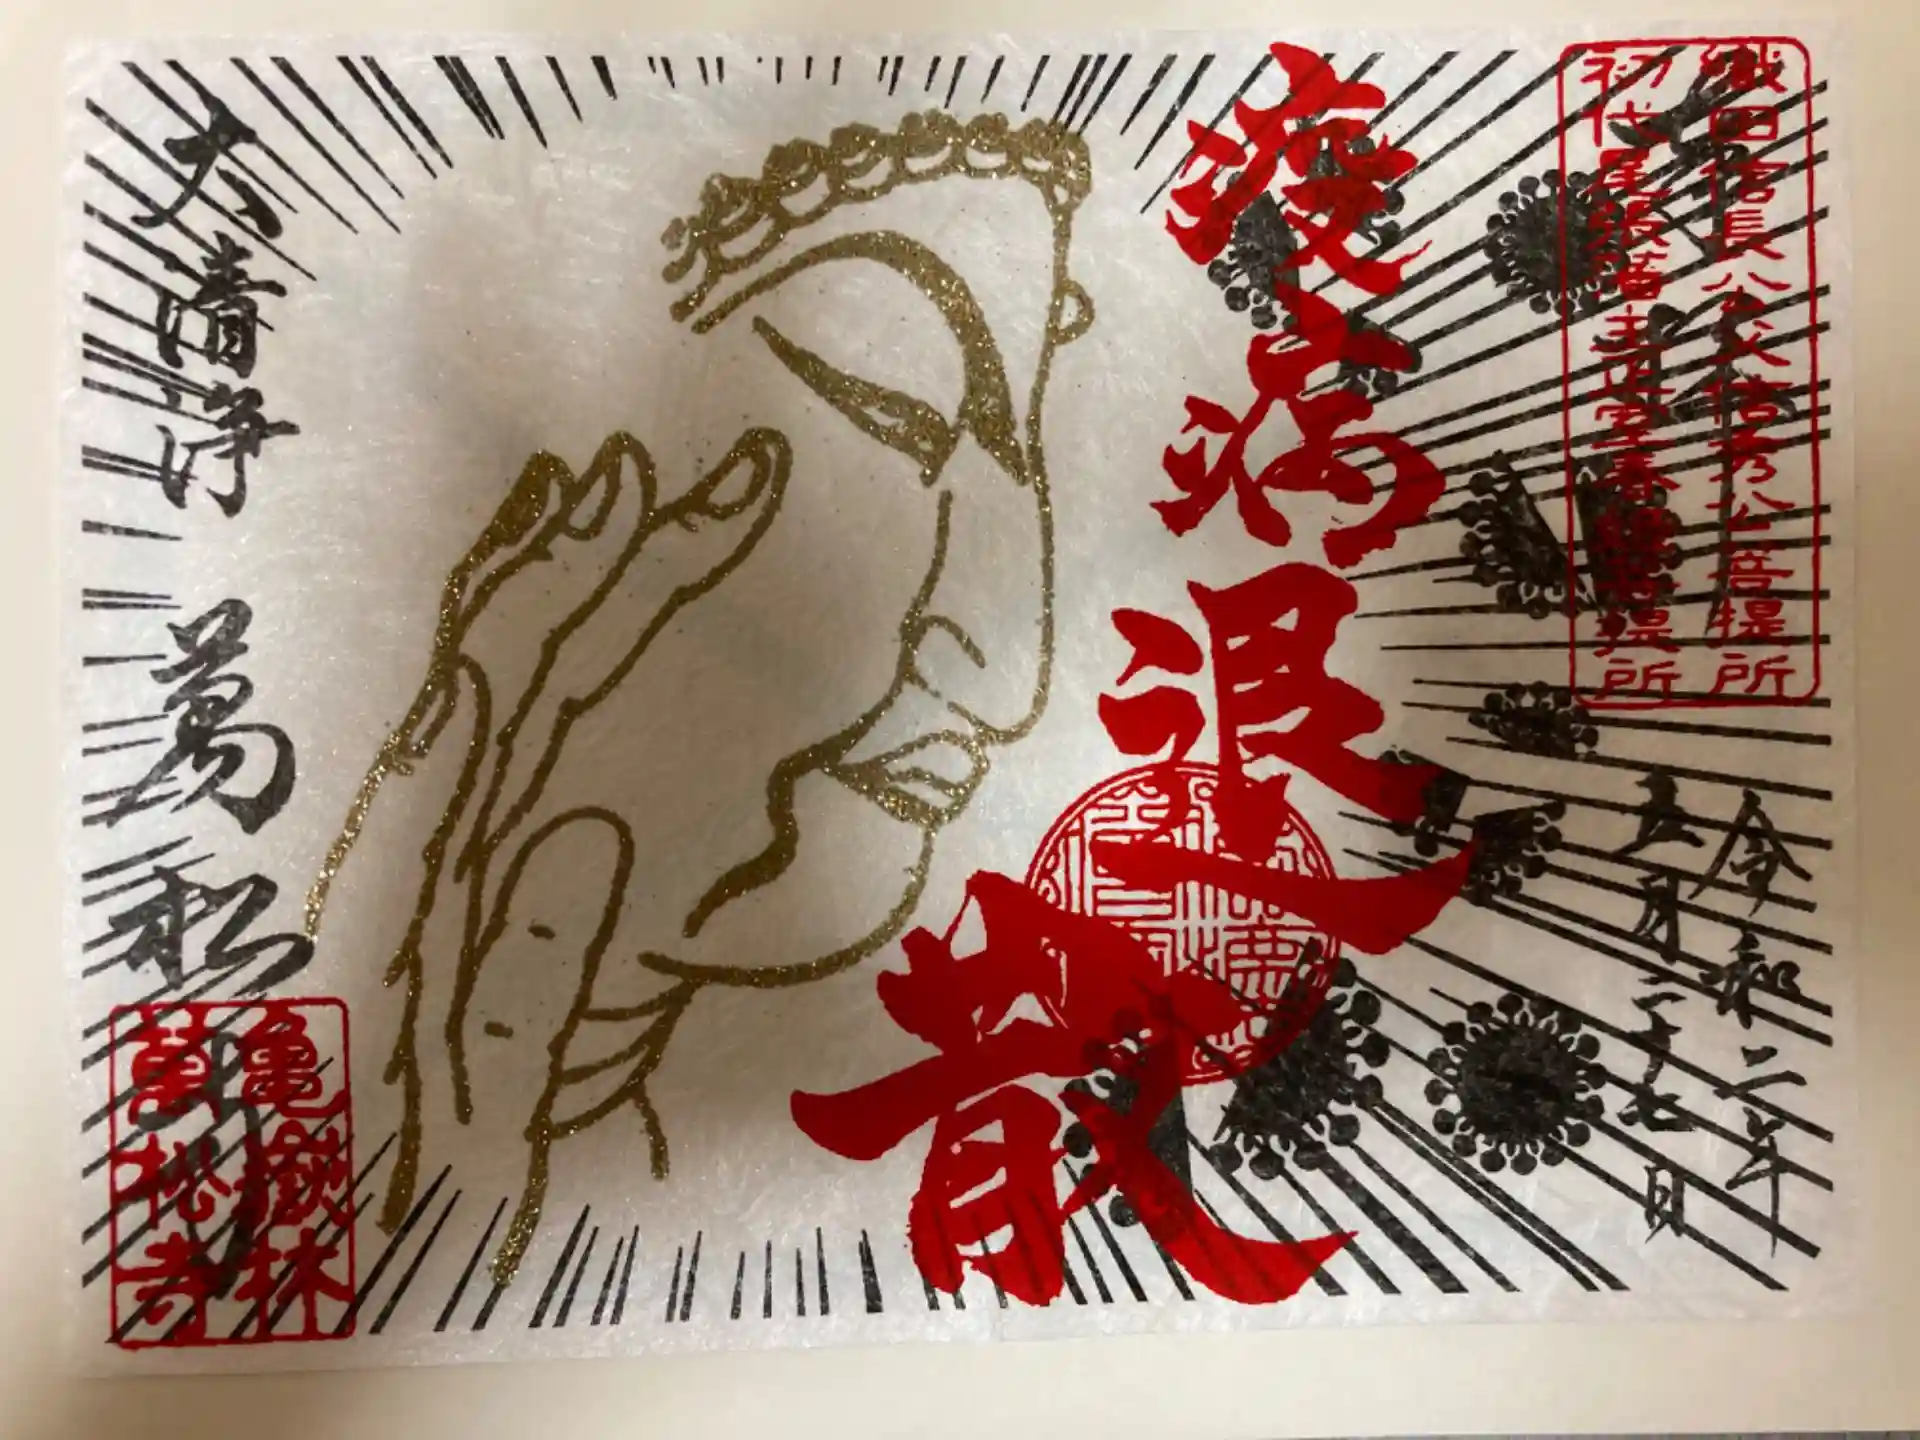 織田信長公父信秀公菩提所
初代尾張藩主正室春姫菩提所
令和二年
五月二十七日
疫病退散
大清浄
萬松寺
亀嶽林
萬松寺